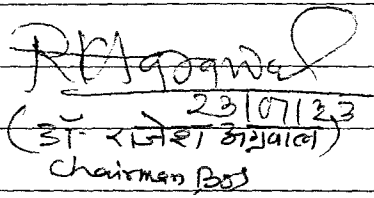 RKAgrawal
23/07/23
(डॉ- राजेश अग्रवाल)
Chairman BOS